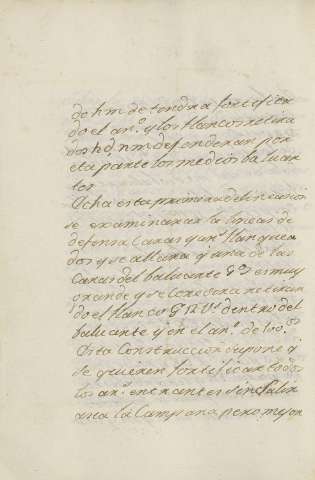 de h m de tendra fortifican
do el an.º y los flancos retira
dos h d, n m defenderan por
esta parte los medios baluar
tes
Echa esta primera delineacion
se examinaran la lineas de
defensa Caras y an.s flanquea
dos y se allara q una de las
Caras del baluarte es muy
grande y se corregira retiran
do el flanco dentro del
baluarte y en el an.º de 100.
Esta Construccion supone q
se quieren fortificar todos
los an.s entrantes sin salir
a la Campana pero mejor